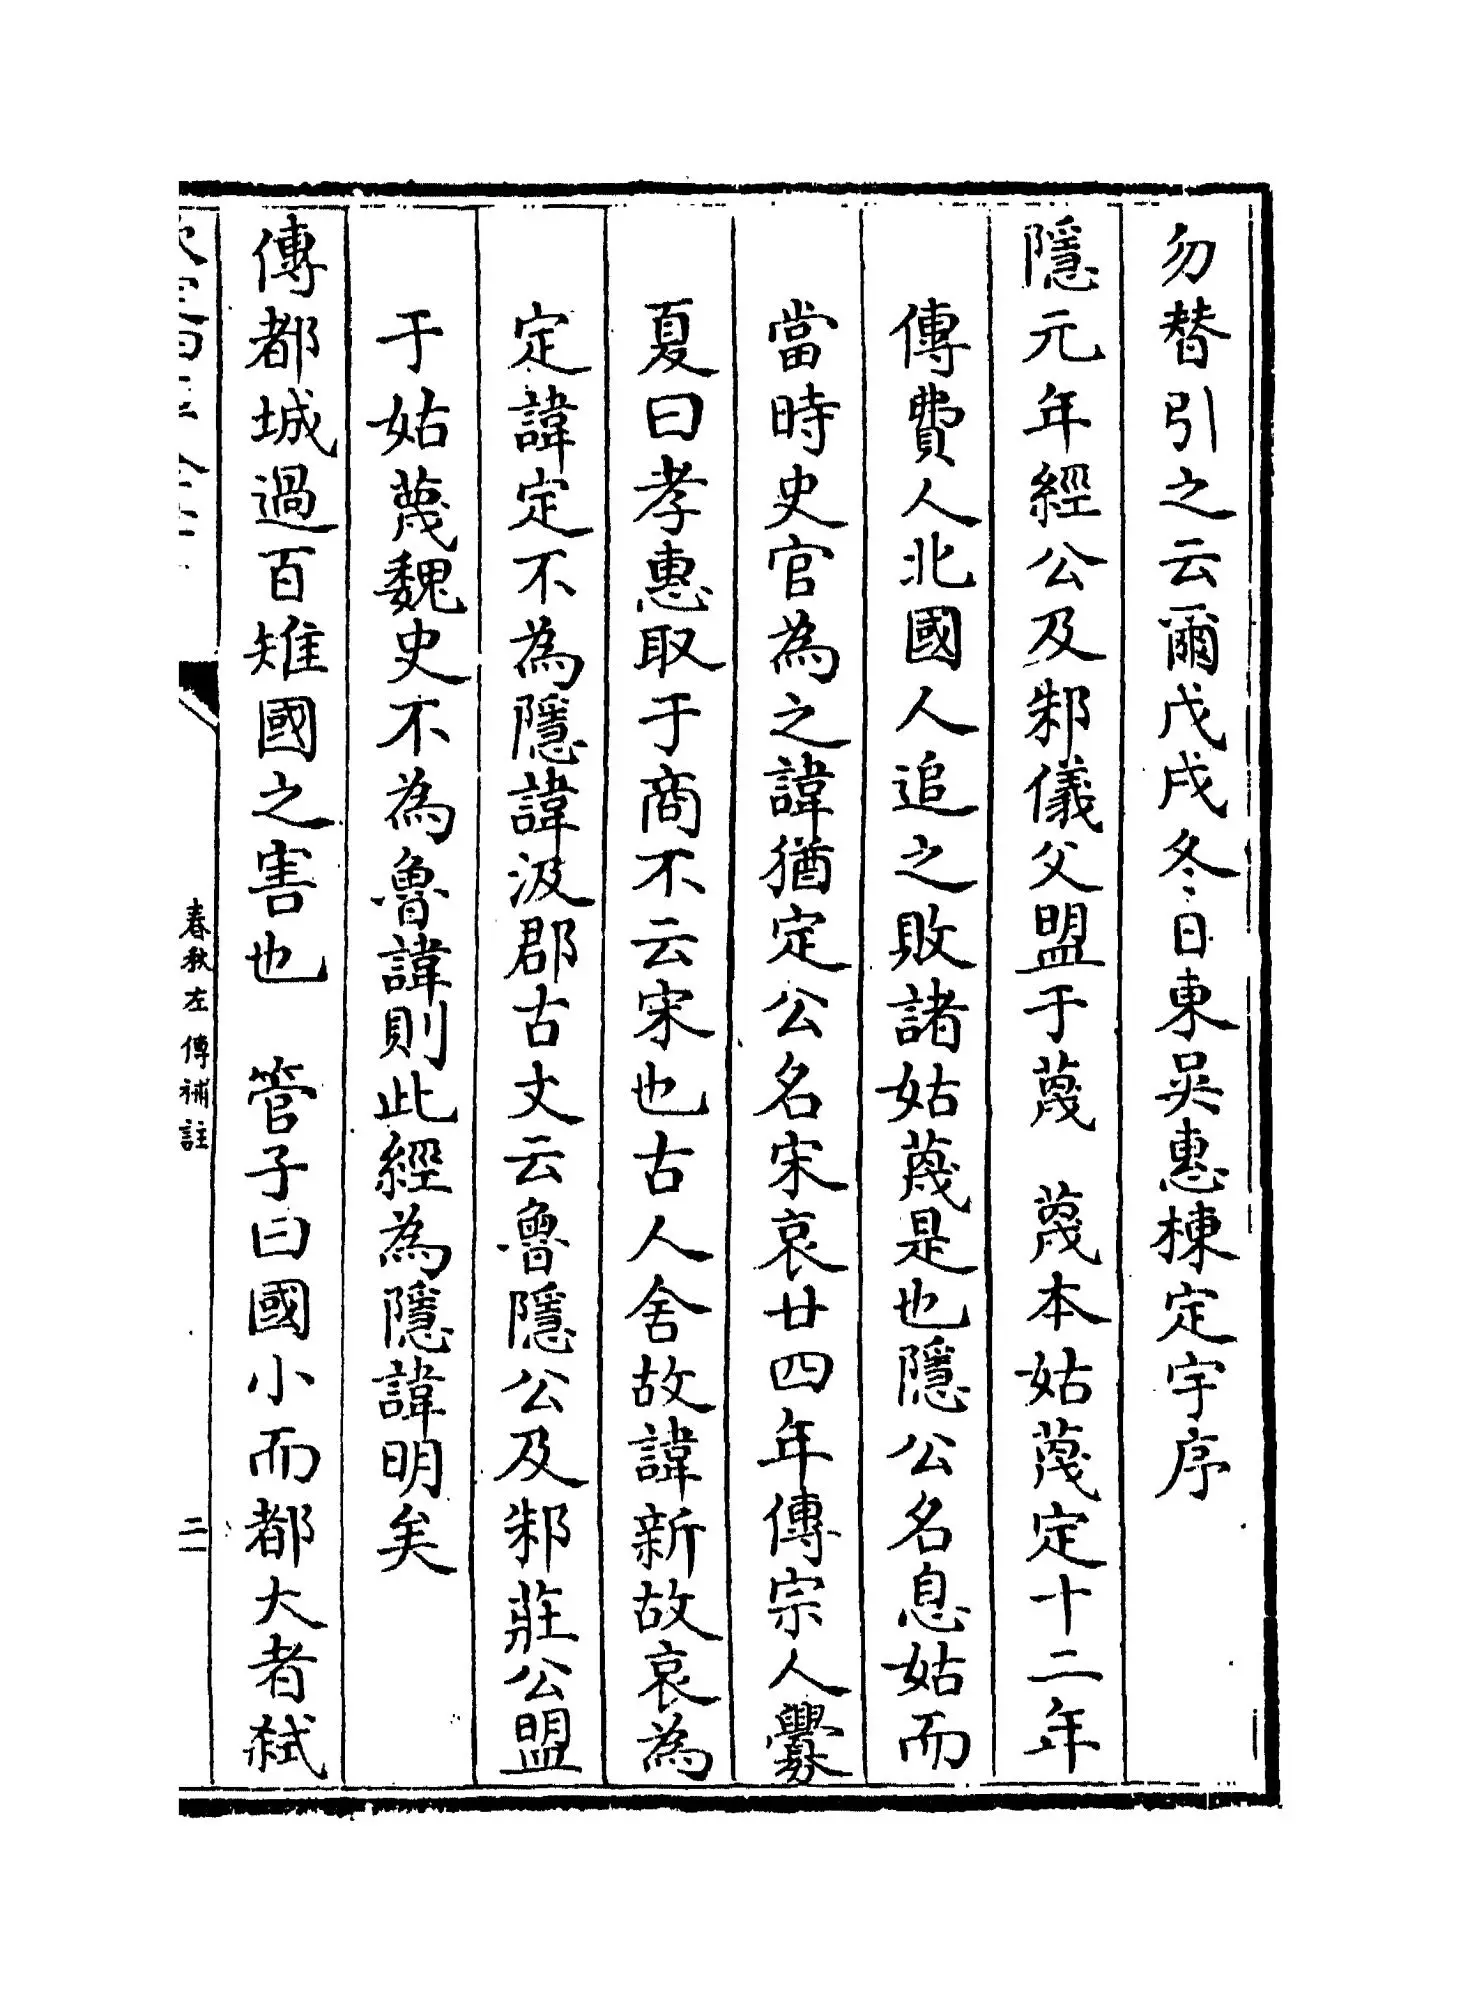 勿替引之云爾戊戌冬日東吳惠棟定宇序
隱元年經公及邾儀父盟于蔑　蔑本姑蔑定十二年
傳費人北國人追之敗諸姑蔑是也隱公名息姑而
當時史官為之諱猶定公名宋哀廿四年傳宗人釁
夏曰孝惠取于商不云宋也古人舍故諱新故哀為
定諱定不為隱諱汲郡古文云魯隱公及邾莊公盟
于姑蔑魏史不為魯諱則此經為隱諱明矣
傳都城過百雉國之害也　管子曰國小而都大者弑
春秋左傳補註
二